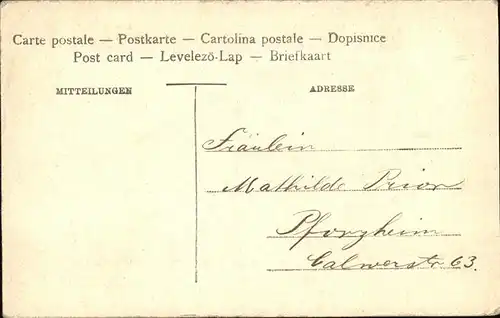 Carte postale — Postkarte — Cartolina postale — Dopisnice
Post card — Levelező-Lap — Briefkaart
MITTEILUNGEN
ADRESSE
Fräulein
Mathilde Prior
Pforzheim
Calwerstr 63.